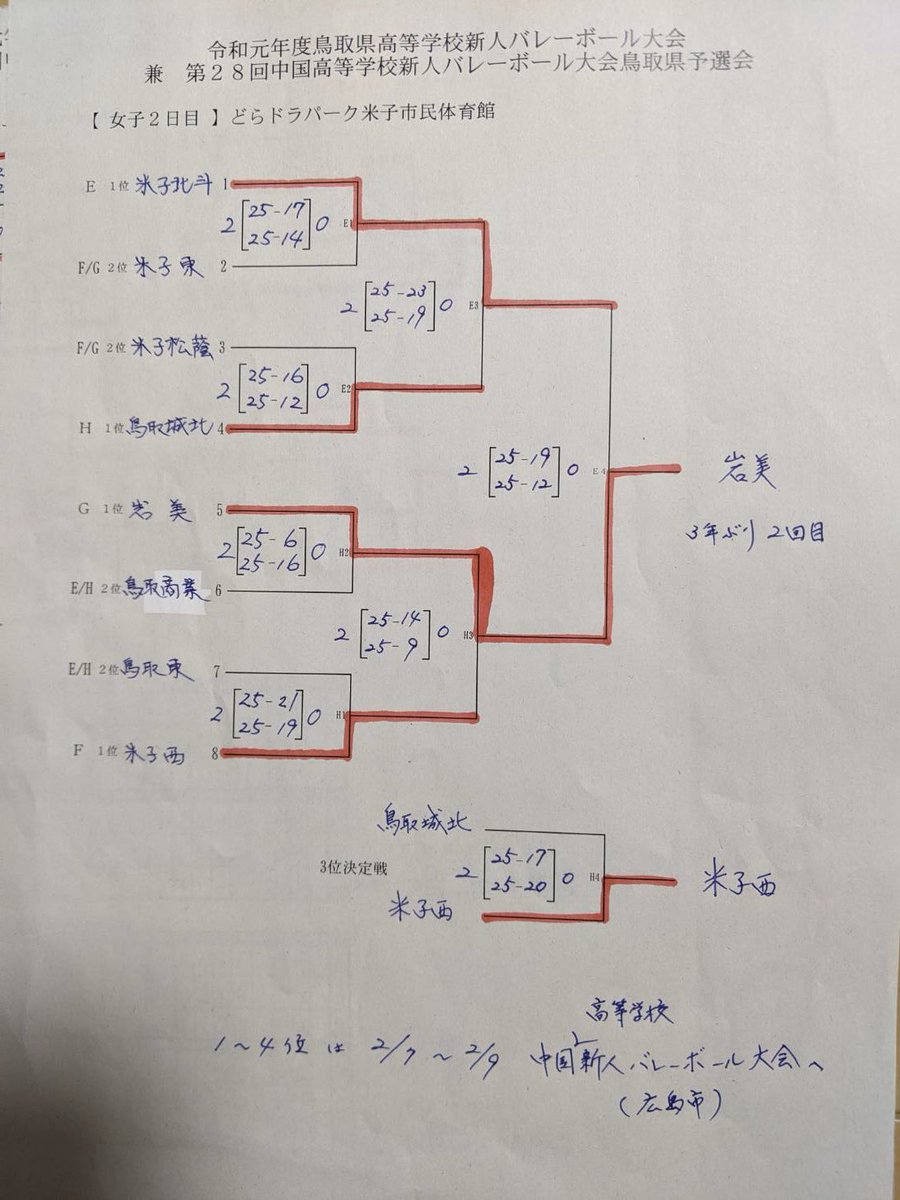 令和元年度鳥取県高等学校新人バレーボール大会
兼 第２８回中国高等学校新人バレーボール大会鳥取県予選会
【 女子２日目 】どらドラパーク米子市民体育館
E 1位 米子北斗 1
2 [25-17 25-14] 0 E1
F/G 2位 米子東 2
2 [25-23 25-19] 0 E3
F/G 2位 米子松蔭 3
2 [25-16 25-12] 0 E2
H 1位 鳥取城北 4
2 [25-19 25-12] 0 E4
岩美
3年ぶり 2回目
G 1位 岩美 5
2 [25-6 25-16] 0 H2
E/H 2位 鳥取商業 6
2 [25-14 25-9] 0 H3
E/H 2位 鳥取東 7
2 [25-21 25-19] 0 H1
F 1位 米子西 8
鳥取城北
3位決定戦
2 [25-17 25-20] 0 H4
米子西
米子西
高等学校
1～4位は 2/7～2/9 中国新人バレーボール大会へ
(広島市)